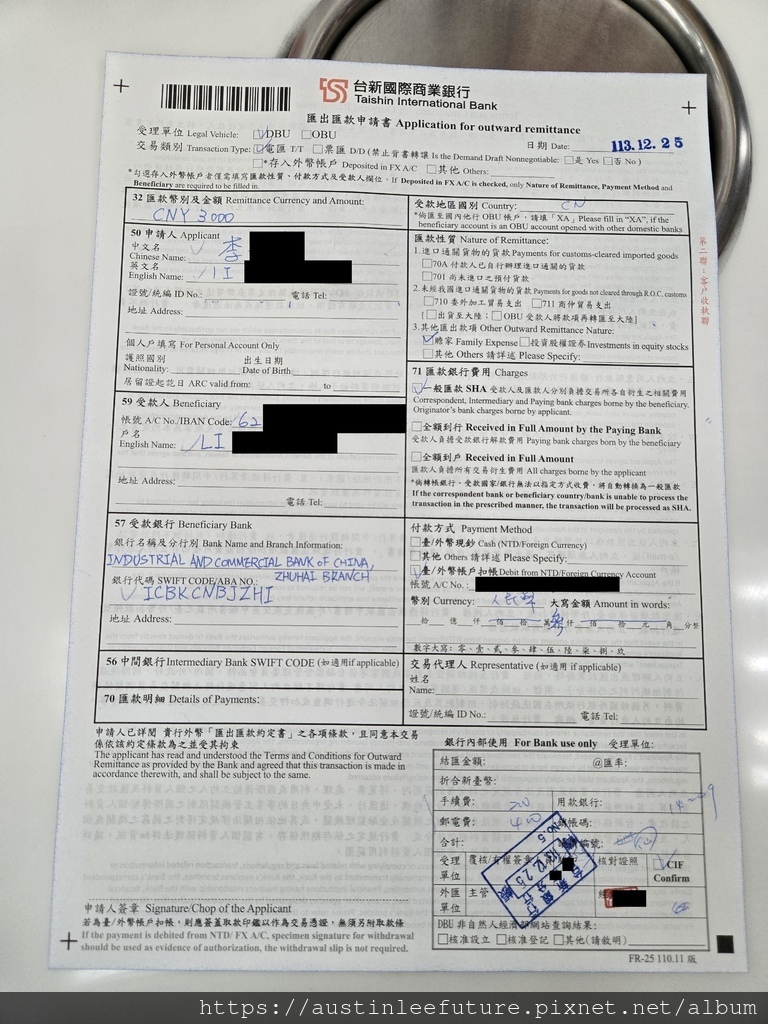 台新國際商業銀行
Taishin International Bank
匯出匯款申請書 Application for outward remittance
受理單位 Legal Vehicle: ☑DBU □OBU
日期 Date: 113.12.25
交易類別 Transaction Type: ☑電匯 T/T □票匯 D/D (禁止背書轉讓 Is the Demand Draft Nonnegotiable: □是 Yes □否 No)
□*存入外幣帳戶 Deposited in FX A/C □其他 Others:
*勾選存入外幣帳戶者僅需填寫匯款性質、付款方式及受款人欄位。If Deposited in FX A/C is checked, only Nature of Remittance, Payment Method and
Beneficiary are required to be filled in.
第二聯:客戶收執聯
32 匯款幣別及金額 Remittance Currency and Amount:
CNY 3000
50 申請人 Applicant
中文名
Chinese Name: 李
英文名
English Name: LI
證號/統編 ID No.: 電話 Tel:
地址 Address:
個人戶填寫 For Personal Account Only
護照國別 出生日期
Nationality: Date of Birth:
居留證起訖日 ARC valid from: to
59 受款人 Beneficiary
帳號 A/C No./IBAN Code: 62
戶名
English Name: LI
地址 Address:
電話 Tel:
57 受款銀行 Beneficiary Bank
銀行名稱及分行別 Bank Name and Branch Information:
INDUSTRIAL AND COMMERCIAL BANK OF CHINA,
ZHUHAI BRANCH
銀行代碼 SWIFT CODE/ABA NO.:
ICBKCNBJZHI
地址 Address:
56 中間銀行 Intermediary Bank SWIFT CODE (如適用if applicable)
70 匯款明細 Details of Payments:
受款地區國別 Country: CN
*倘匯至國內他行 OBU 帳戶,請填「XA」Please fill in "XA", if the
beneficiary account is an OBU account opened with other domestic banks
匯款性質 Nature of Remittance:
1.進口通關貨物的貨款 Payments for customs-cleared imported goods
□70A 付款人已自行辦理進口通關的貨款
□701 尚未進口之預付貨款
2.未經我國進口通關貨物的貨款 Payments for goods not cleared through R.O.C. customs
□710 委外加工貿易支出 □711 商仲貿易支出
[□出貨至大陸;□OBU 受款人將款項再轉匯至大陸]
3.其他匯出款項 Other Outward Remittance Nature:
☑贍家 Family Expense □投資股權證券 Investments in equity stocks
□其他 Others 請詳述 Please Specify:
71 匯款銀行費用 Charges
☑一般匯款 SHA 受款人及匯款人分別負擔交易所各自衍生之相關費用
Correspondent, Intermediary and Paying bank charges borne by the beneficiary.
Originator's bank charges borne by applicant.
□全額到行 Received in Full Amount by the Paying Bank
受款人負擔受款銀行解款費用 Paying bank charges born by the beneficiary
□全額到戶 Received in Full Amount
匯款人負擔所有交易衍生費用 All charges borne by the applicant
*倘轉帳銀行、受款國家/銀行無法以指定方式收費,將自動轉換為一般匯款
If the correspondent bank or beneficiary country/bank is unable to process the
transaction in the prescribed manner, the transaction will be processed as SHA.
付款方式 Payment Method
□臺/外幣現鈔 Cash (NTD/Foreign Currency)
□其他 Others 請詳述 Please Specify:
☑臺/外幣帳戶扣帳 Debit from NTD/Foreign Currency Account
帳號 A/C No.:
幣別 Currency: 人民幣 大寫金額 Amount in words:
拾 億 仟 佰 拾 萬 參 仟 佰 拾 元 角 分整
數字大寫:零、壹、貳、參、肆、伍、陸、柒、捌、玖
交易代理人 Representative (如適用 if applicable)
姓名
Name:
證號/統編 ID No.: 電話 Tel:
申請人已詳閱 貴行外幣「匯出匯款約定書」之各項條款,且同意本交易
係依該約定條款為之並受其拘束
The applicant has read and understood the Terms and Conditions for Outward
Remittance as provided by the Bank and agreed that this transaction is made in
accordance therewith, and shall be subject to the same.
申請人簽章 Signature/Chop of the Applicant
若為臺/外幣帳戶扣帳,則應簽蓋取款印鑑以作為交易憑證,無須另附取款條
If the payment is debited from NTD/ FX A/C, specimen signature for withdrawal
should be used as evidence of authorization, the withdrawal slip is not required.
銀行內部使用 For Bank use only 受理單位:
結匯金額: @匯率:
折合新臺幣:
手續費: 用款銀行:
郵電費: 400
合計:
受理單位 覆核/有權簽章 核對證照 ☑CIF Confirm
外匯單位 主管
DBU 非自然人經濟部網站查詢結果:
□核准設立 □核准登記 □其他(請敘明)
FR-25 110.11 版
https://austinleefuture.pixnet.net/album